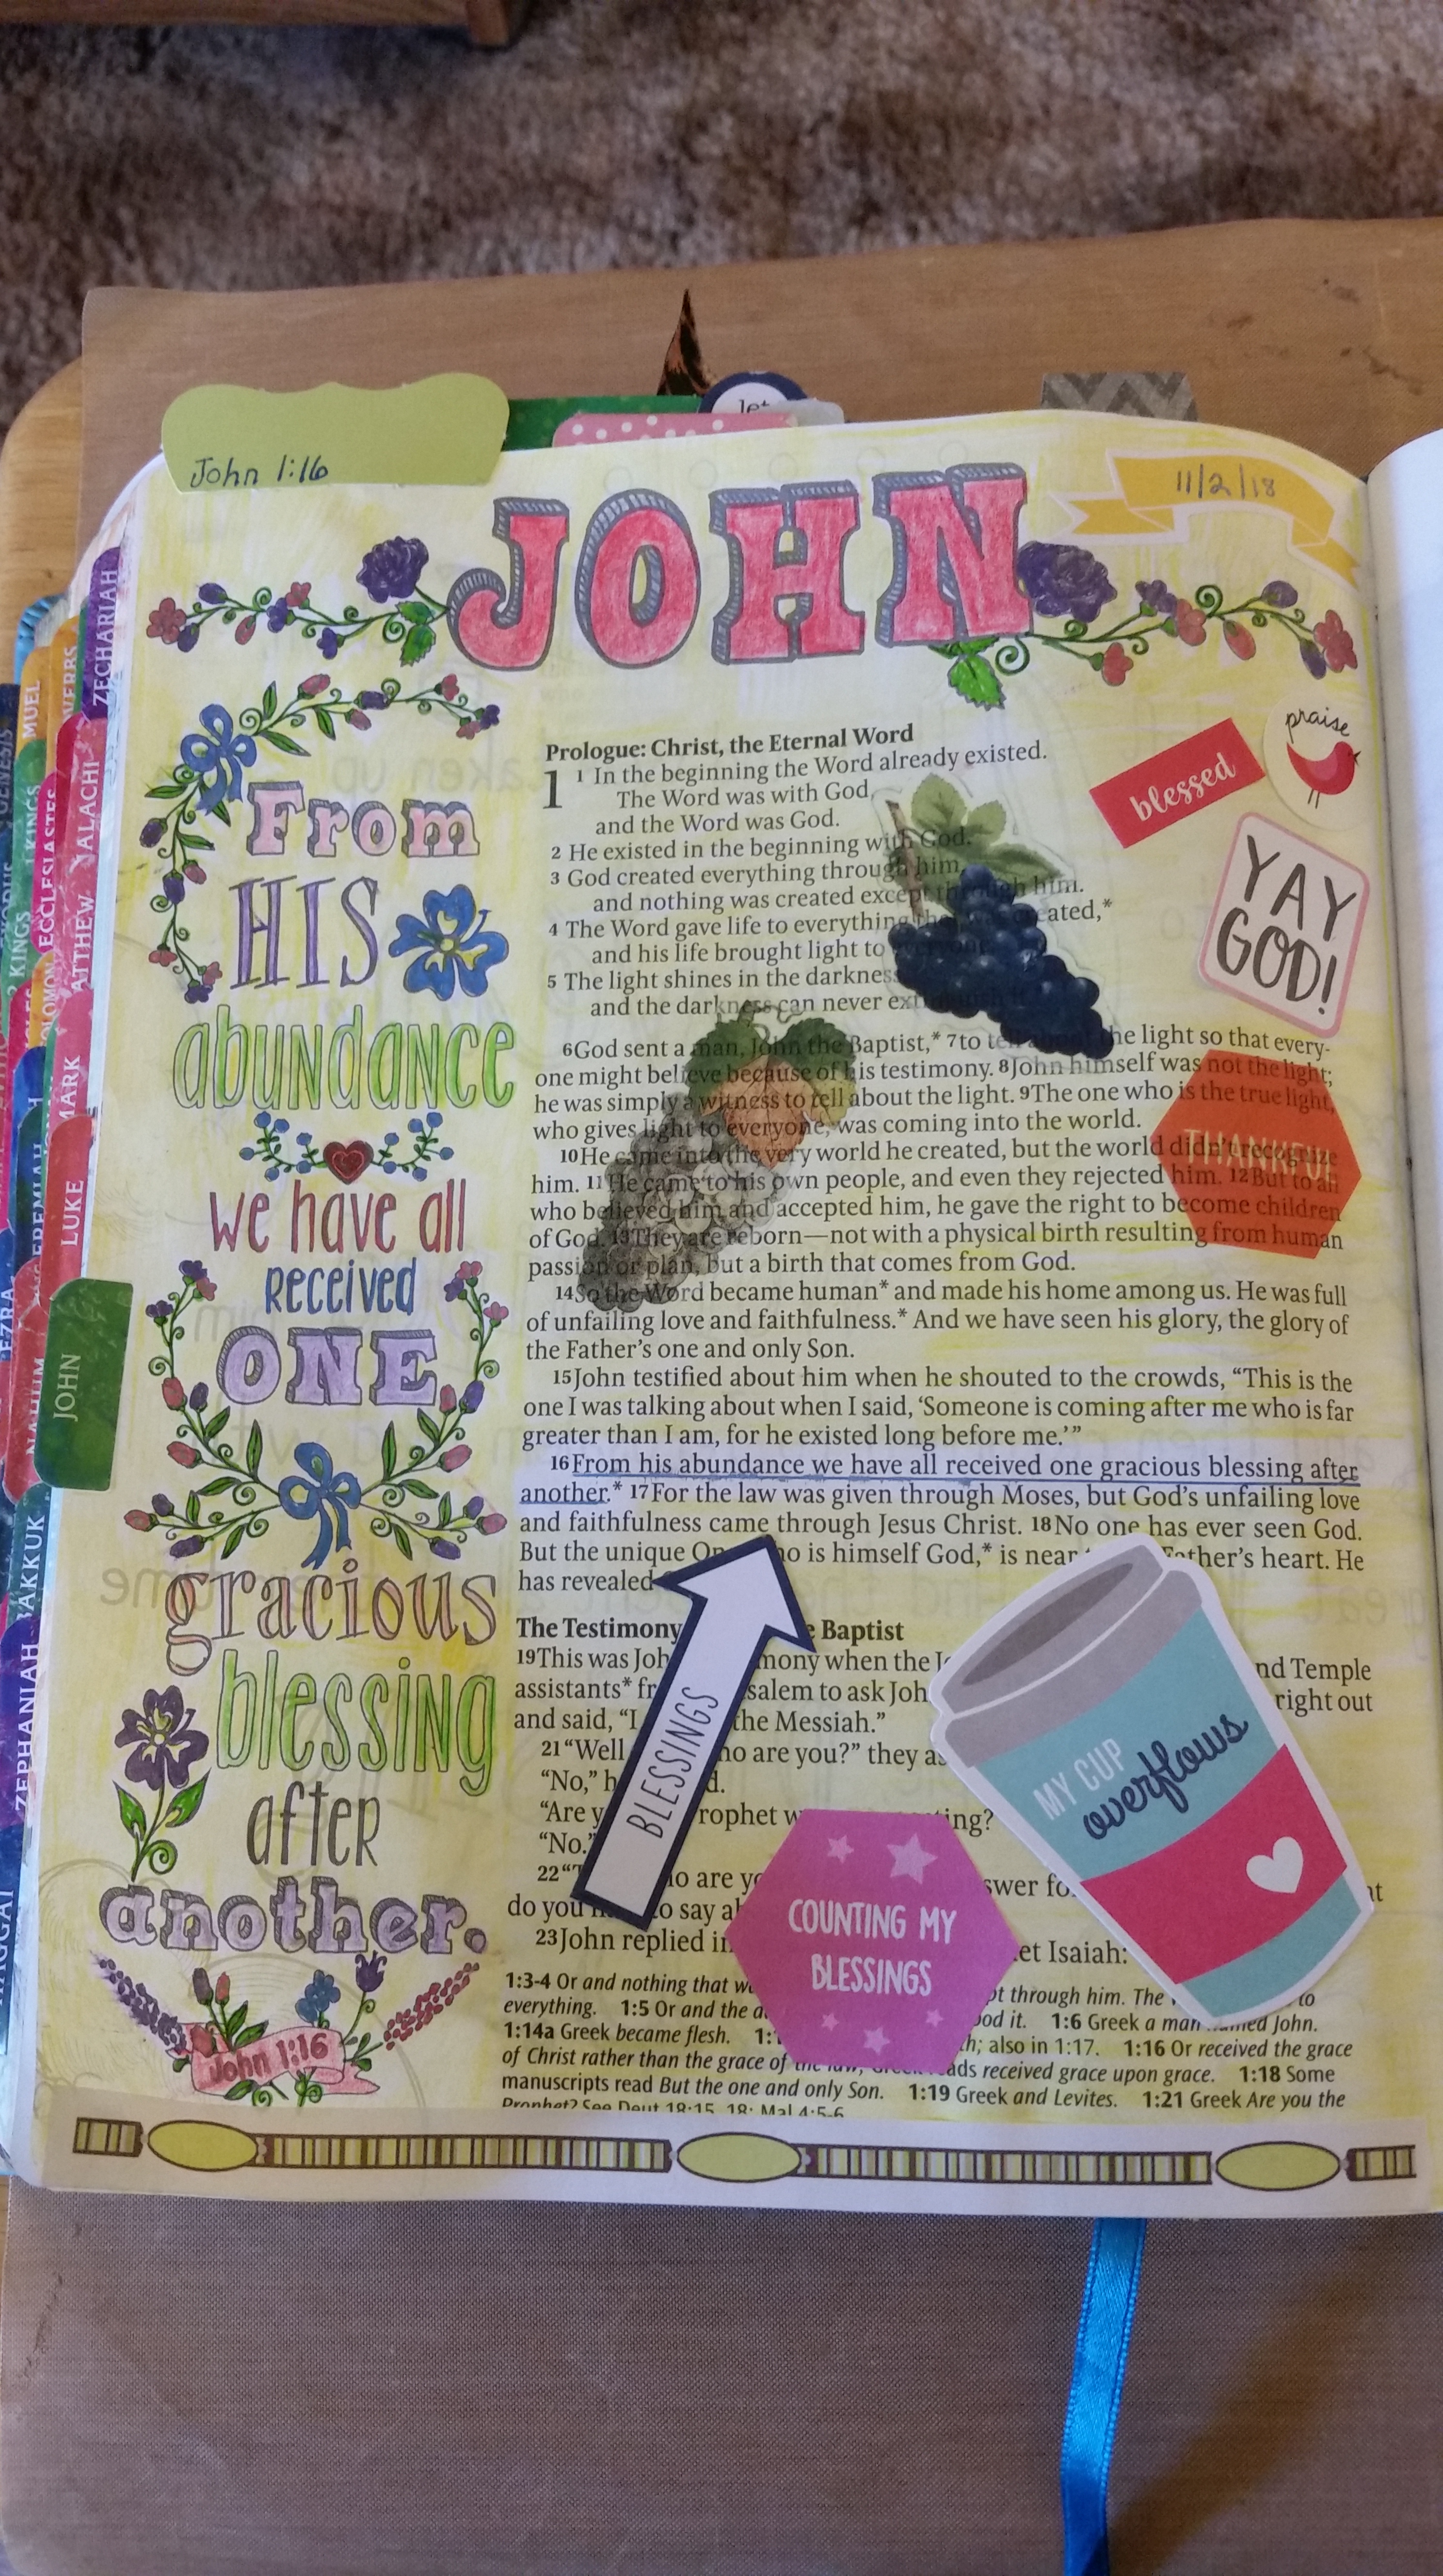 John 1:16
let
11/2/18
JOHN
praise
blessed
YAY
GOD!
THANKFUL
From
HIS
abundance
we have all
received
ONE
gracious
blessing
after
another.
John 1:16
Prologue: Christ, the Eternal Word
1 1 In the beginning the Word already existed.
The Word was with God,
and the Word was God.
2 He existed in the beginning with God.
3 God created everything through him,
and nothing was created except through him.
4 The Word gave life to everything that was created,*
and his life brought light to
5 The light shines in the darkness
and the darkness can never extinguish it.
6God sent a man, John the Baptist,* 7to tell about the light so that every-
one might believe because of his testimony. 8John himself was not the light;
he was simply a witness to tell about the light. 9The one who is the true light,
who gives light to everyone, was coming into the world.
10He came into the very world he created, but the world didn't recognize
him. 11He came to his own people, and even they rejected him. 12But to all
who believed him and accepted him, he gave the right to become children
of God. 13They are reborn—not with a physical birth resulting from human
passion or plan, but a birth that comes from God.
14So the Word became human* and made his home among us. He was full
of unfailing love and faithfulness.* And we have seen his glory, the glory of
the Father's one and only Son.
15John testified about him when he shouted to the crowds, “This is the
one I was talking about when I said, ‘Someone is coming after me who is far
greater than I am, for he existed long before me.’”
16From his abundance we have all received one gracious blessing after
another.* 17For the law was given through Moses, but God's unfailing love
and faithfulness came through Jesus Christ. 18No one has ever seen God.
But the unique who is himself God,* is near Father's heart. He
has revealed
The Testimony Baptist
19This was when the nd Temple
assistants* salem to ask right out
and said, “I the Messiah.”
21“Well who are you?” they
“No,”
“Are rophet ing?
“No.”
22 are swer
do you to say
23John replied in et Isaiah:
BLESSINGS
MY CUP
overflows
COUNTING MY
BLESSINGS
1:3-4 Or and nothing that pt through him. The to
everything. 1:5 Or and the ood it. 1:6 Greek a man named John.
1:14a Greek became flesh. th; also in 1:17. 1:16 Or received the grace
of Christ rather than the grace of the law; Greek reads received grace upon grace. 1:18 Some
manuscripts read But the one and only Son. 1:19 Greek and Levites. 1:21 Greek Are you the
Prophet? See Deut 18:15, 18; Mal 4:5-6
ZECHARIAH
MUEL
VERBS
GENESIS
ALACHI
KINGS
ECCLESIASTES
ATTHEW
2 KINGS
OLOMON
MARK
LUKE
EREMIAH
EZRA
NAHUM
JOHN
BAKKUK
ZEPHANIAH
HAGGAI